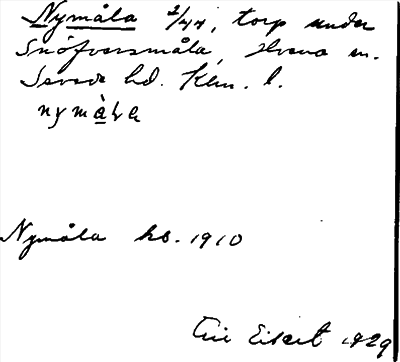 Nymåla 2/44, torp under
Snöfversmåla, Hvena sn.
Sevede hd. Klm. l.
nymåla
Nymåla hs. 1910
Eckert 1929